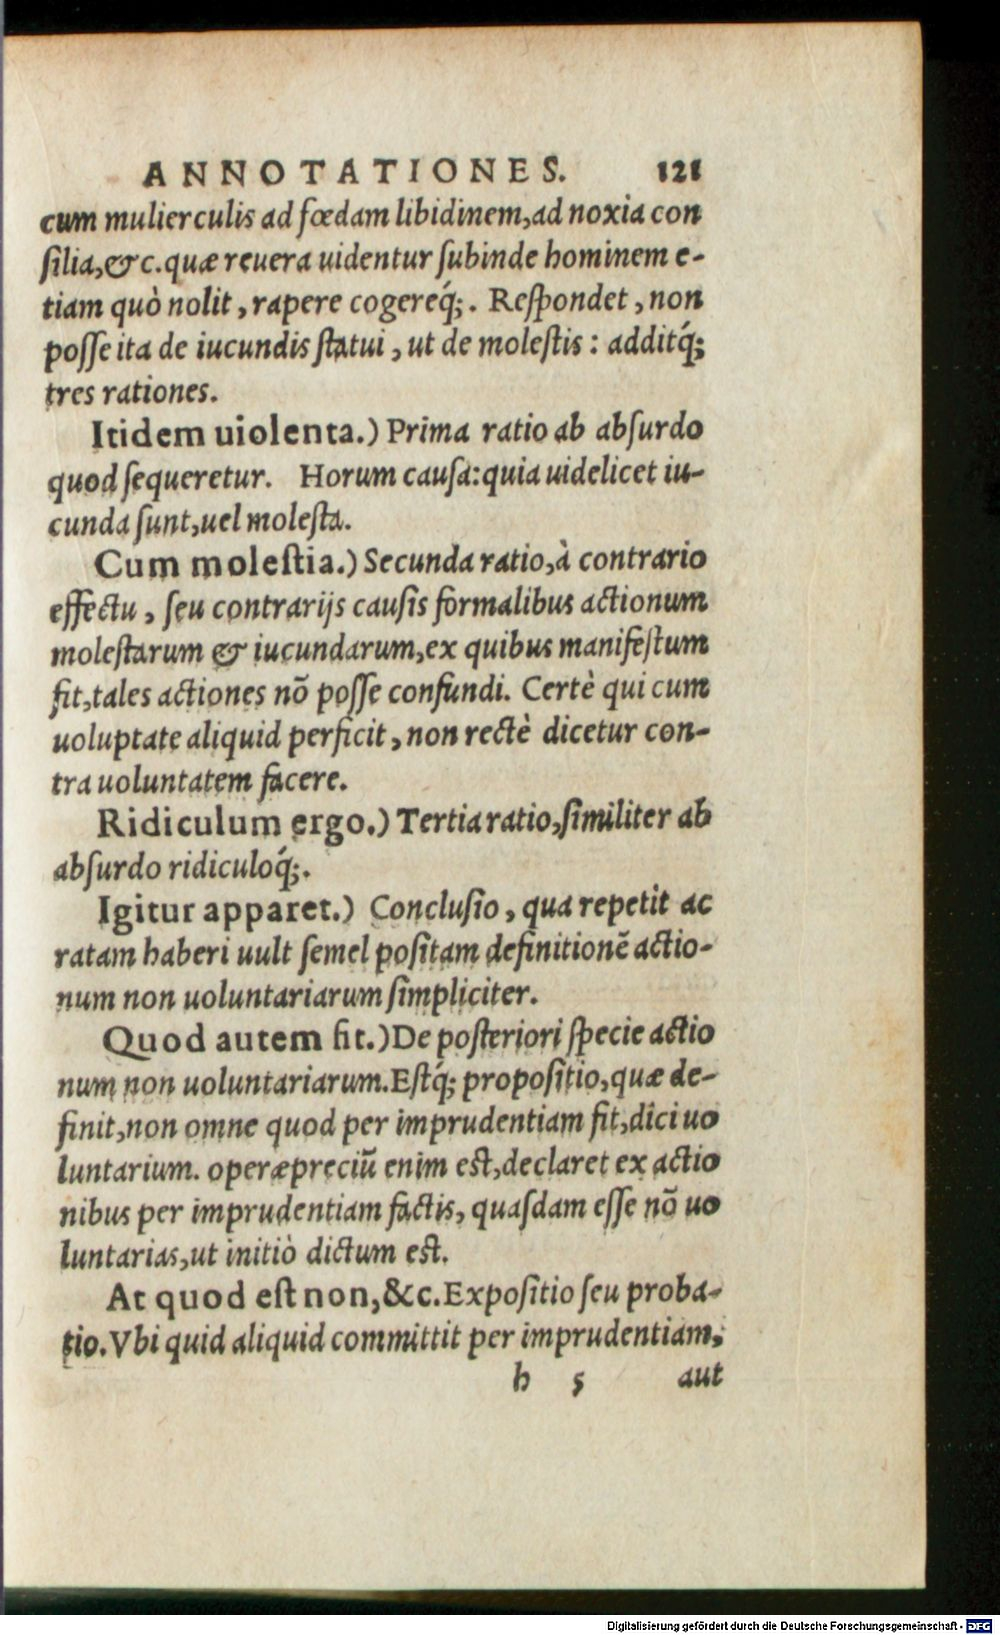 ANNOTATIONES. 121
cum mulierculis ad fœdam libidinem, ad noxia con
ſilia, &c. quæ reuera uidentur ſubinde hominem e-
tiam quò nolit, rapere cogereq́;. Reſpondet, non
poſſe ita de iucundis ſtatui, ut de moleſtis: additq́;
tres rationes.
Itidem uiolenta.) Prima ratio ab abſurdo
quod ſequeretur. Horum cauſa: quia uidelicet iu-
cunda ſunt, uel moleſta.
Cum moleſtia.) Secunda ratio, à contrario
effectu, ſeu contrarijs cauſis formalibus actionum
moleſtarum & iucundarum, ex quibus manifeſtum
fit, tales actiones nō poſſe confundi. Certè qui cum
uoluptate aliquid perficit, non rectè dicetur con-
tra uoluntatem facere.
Ridiculum ergo.) Tertia ratio, ſimiliter ab
abſurdo ridiculoq́;.
Igitur apparet.) Concluſio, qua repetit ac
ratam haberi uult ſemel poſitam definitionē actio-
num non uoluntariarum ſimpliciter.
Quod autem fit.) De poſteriori ſpecie actio
num non uoluntariarum. Eſtq́; propoſitio, quæ de-
finit, non omne quod per imprudentiam fit, dici uo
luntarium. operæpreciū enim eſt, declaret ex actio
nibus per imprudentiam factis, quaſdam eſſe nō uo
luntarias, ut initiò dictum eſt.
At quod eſt non, &c. Expoſitio ſeu proba-
tio. Vbi quid aliquid committit per imprudentiam,
h 5 aut
Digitalisierung gefördert durch die Deutsche Forschungsgemeinschaft - DFG